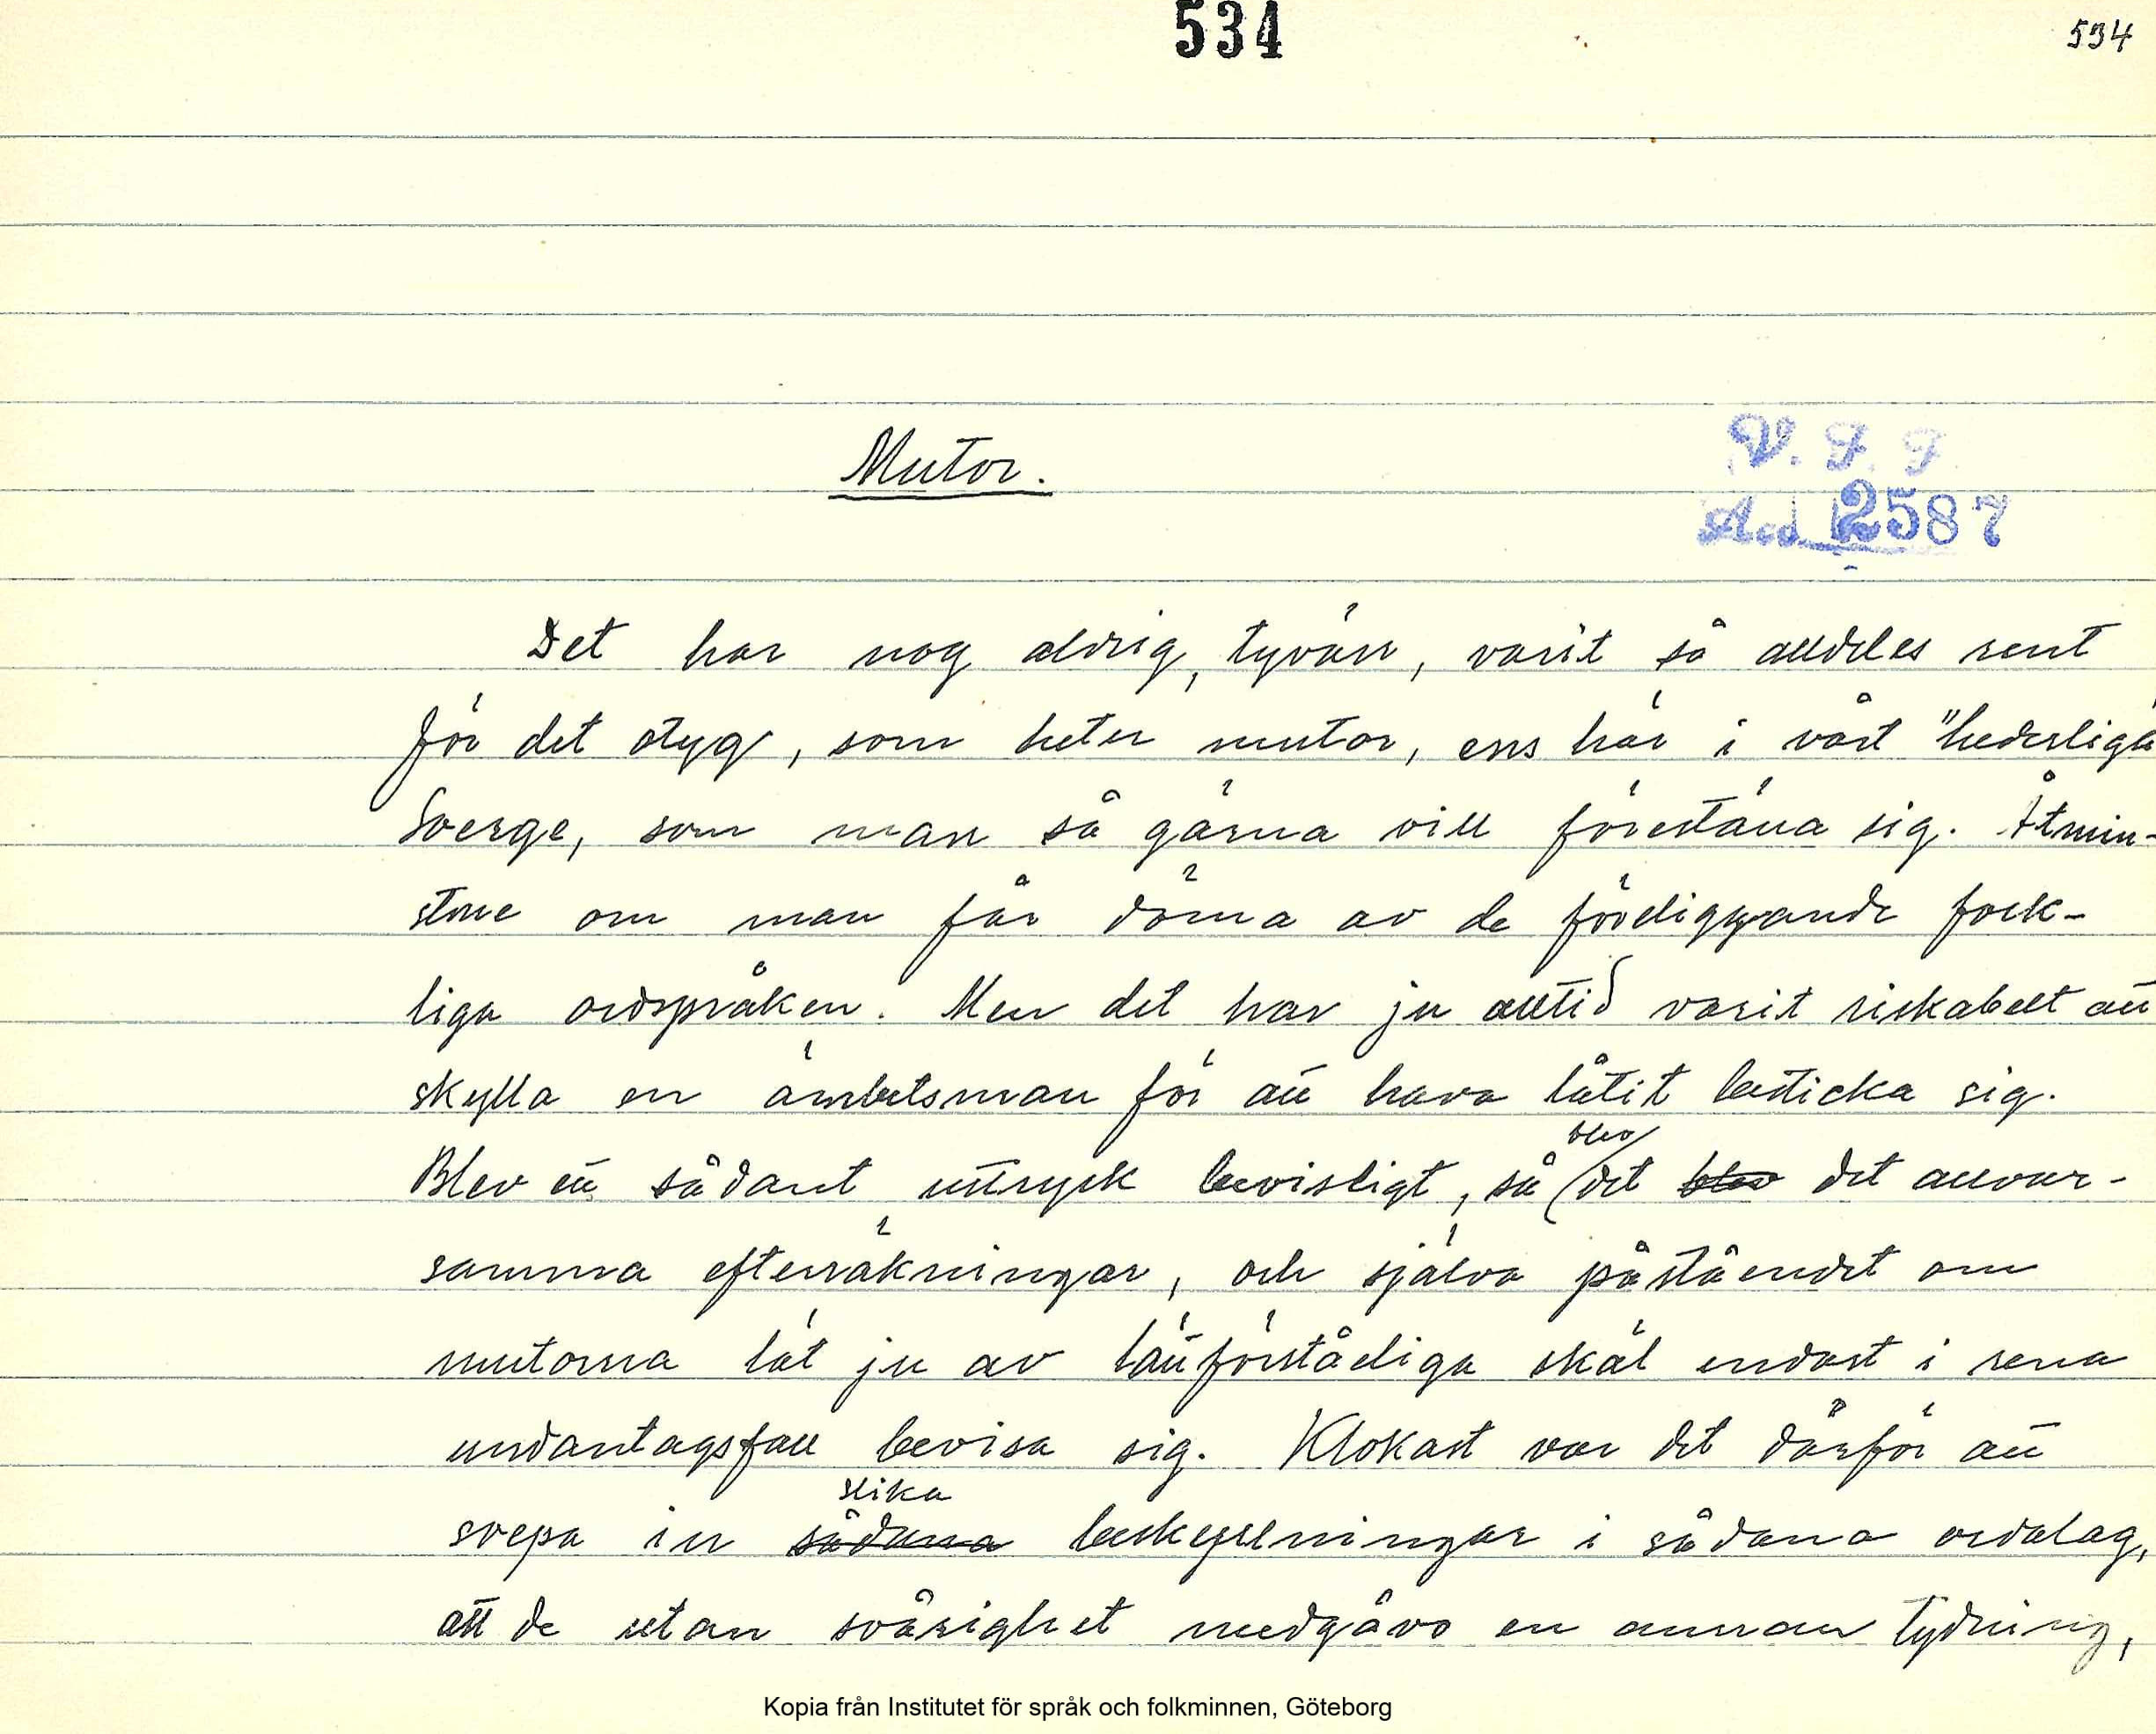 534
534
Mutor.
V. F. F.
Acc 2587
Det har nog aldrig, tyvärr, varit så alldeles rent
för det otyg, som heter mutor, ens här i vårt "hederliga
Sverge, som man så gärna vill föreställa sig. Åtmin-
stone om man får döma av de föreliggande folk-
liga ordspråken. Men det har ju alltid varit riskabelt att
skylla en ämbetsman för att hava låtit besticka sig.
blev
Blev ett sådant uttryck bevisligt, så det blev det allvar-
samma efterräkningar, och själva påståendet om
mutorna lät ju av lättförståeliga skäl endast i rena
undantagsfall bevisa sig. Klokast var det därför att
slika
svepa in sådana beskyllningar i sådana ordalag,
att de utan svårighet medgåvo en annan tydning,
Kopia från Institutet för språk och folkminnen, Göteborg